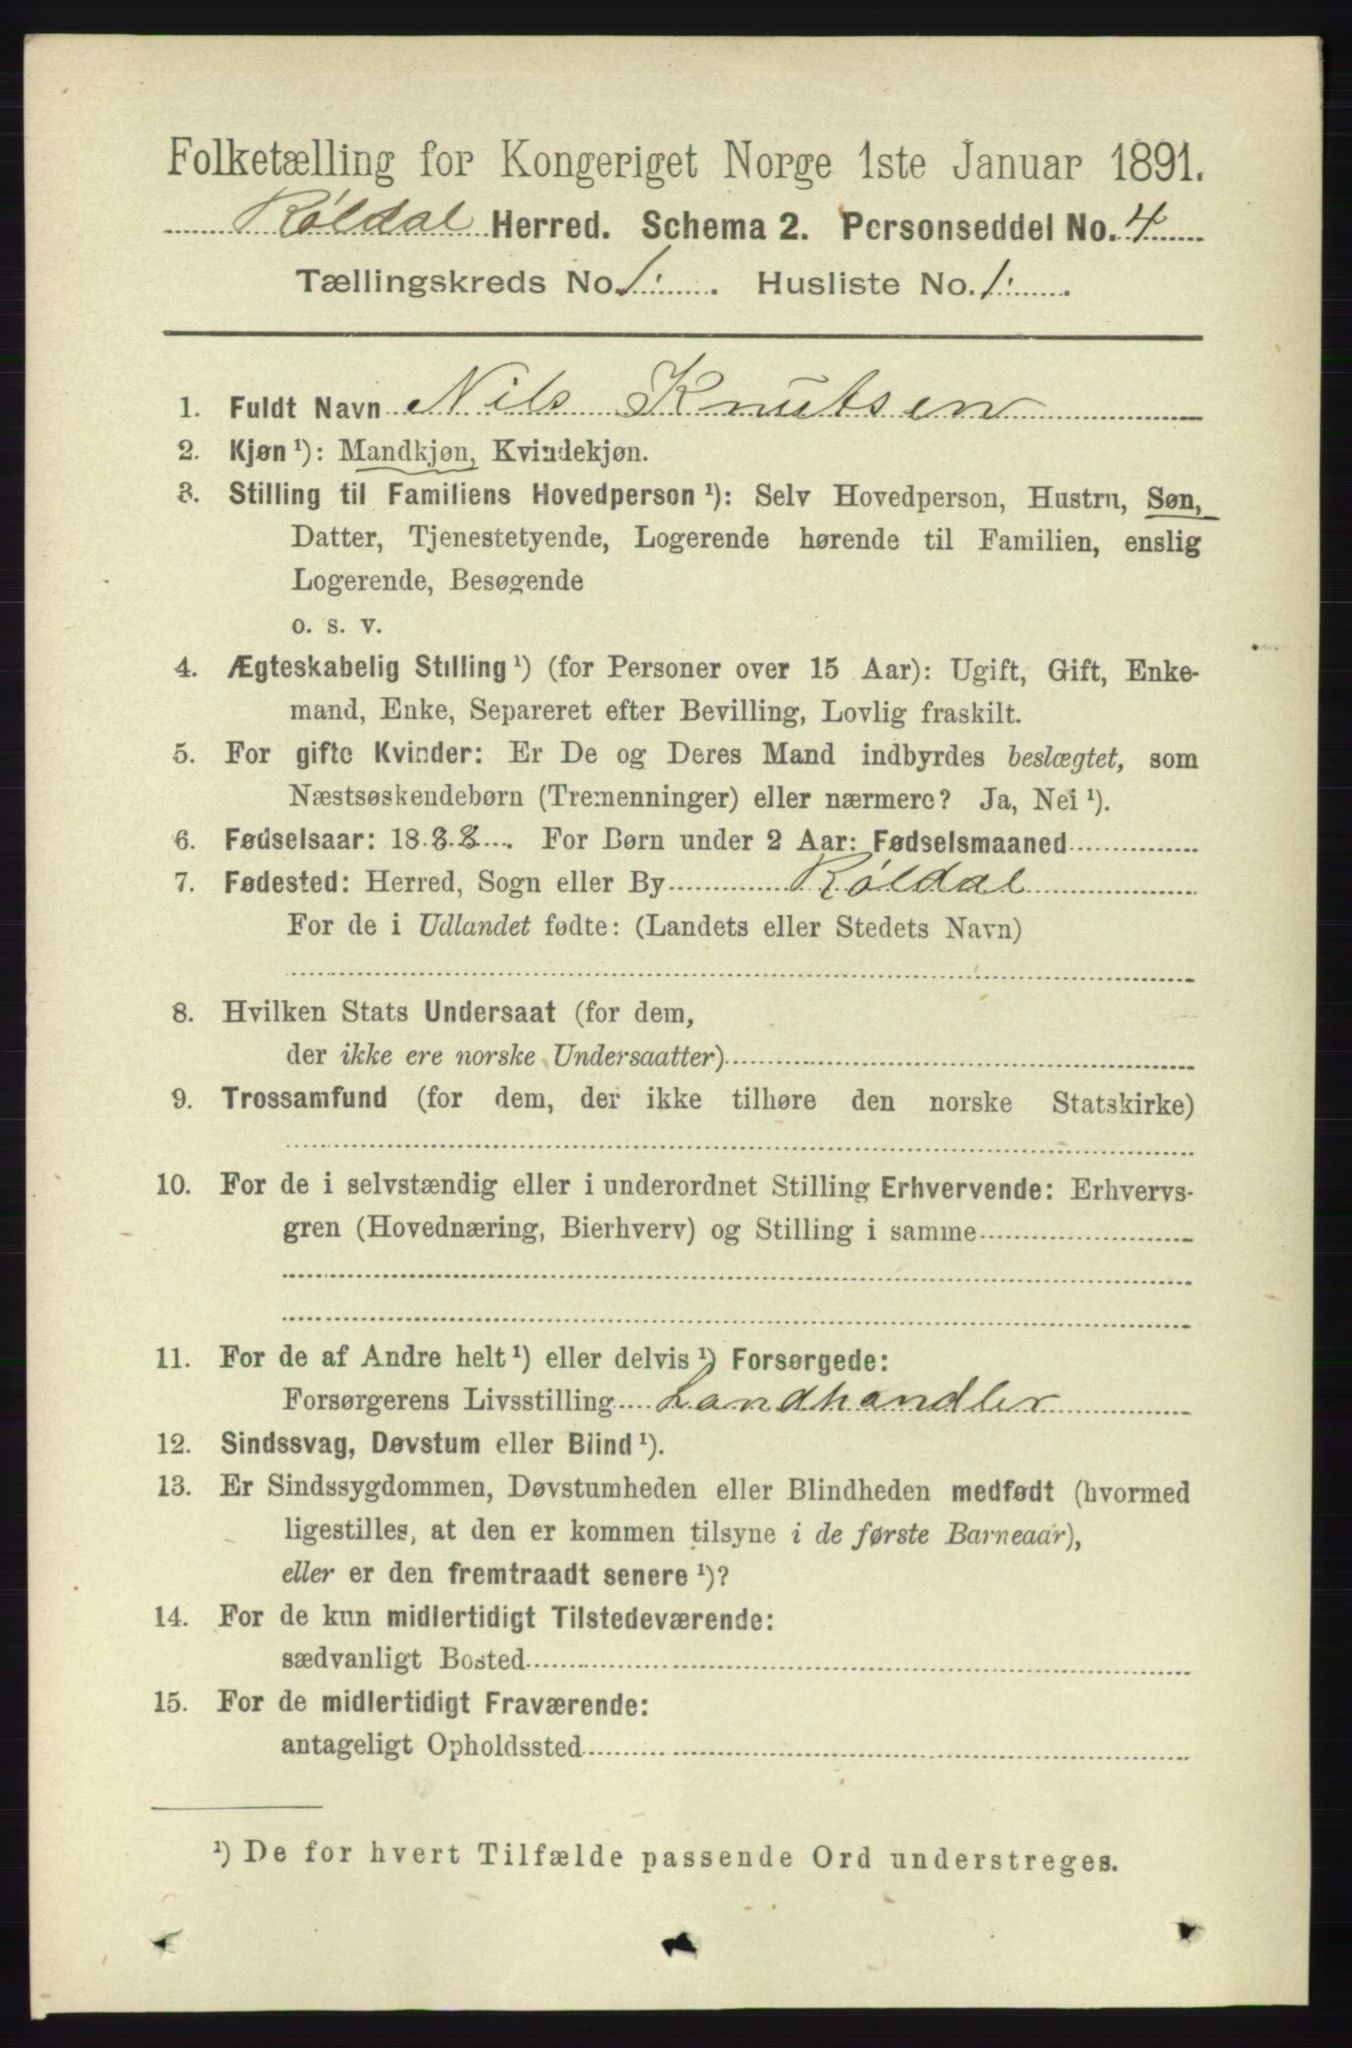 Folketælling for Kongeriget Norge 1ste Januar 1891.
Røldal Herred. Schema 2. Personseddel No. 4
Tællingskreds No. 1. Husliste No. 1.
1. Fuldt Navn Nils Knutsen
2. Kjøn ¹): Mandkjøn, Kvindekjøn.
3. Stilling til Familiens Hovedperson ¹): Selv Hovedperson, Hustru, Søn,
Datter, Tjenestetyende, Logerende hørende til Familien, enslig
Logerende, Besøgende
o. s. v.
4. Ægteskabelig Stilling ¹) (for Personer over 15 Aar): Ugift, Gift, Enke-
mand, Enke, Separeret efter Bevilling, Lovlig fraskilt.
5. For gifte Kvinder: Er De og Deres Mand indbyrdes beslægtet, som
Næstsøskendebørn (Tremenninger) eller nærmere? Ja, Nei ¹).
6. Fødselsaar: 1888. For Børn under 2 Aar: Fødselsmaaned
7. Fødested: Herred, Sogn eller By Røldal
For de i Udlandet fødte: (Landets eller Stedets Navn)
8. Hvilken Stats Undersaat (for dem,
der ikke ere norske Undersaatter)
9. Trossamfund (for dem, der ikke tilhøre den norske Statskirke)
10. For de i selvstændig eller i underordnet Stilling Erhvervende: Erhvervs-
gren (Hovednæring, Bierhverv) og Stilling i samme
11. For de af Andre helt ¹) eller delvis ¹) Forsørgede:
Forsørgerens Livsstilling Landhandler
12. Sindssvag, Døvstum eller Blind ¹).
13. Er Sindssygdommen, Døvstumheden eller Blindheden medfødt (hvormed
ligestilles, at den er kommen tilsyne i de første Barneaar),
eller er den fremtraadt senere ¹)?
14. For de kun midlertidigt Tilstedeværende:
sædvanligt Bosted
15. For de midlertidigt Fraværende:
antageligt Opholdssted
¹) De for hvert Tilfælde passende Ord understreges.